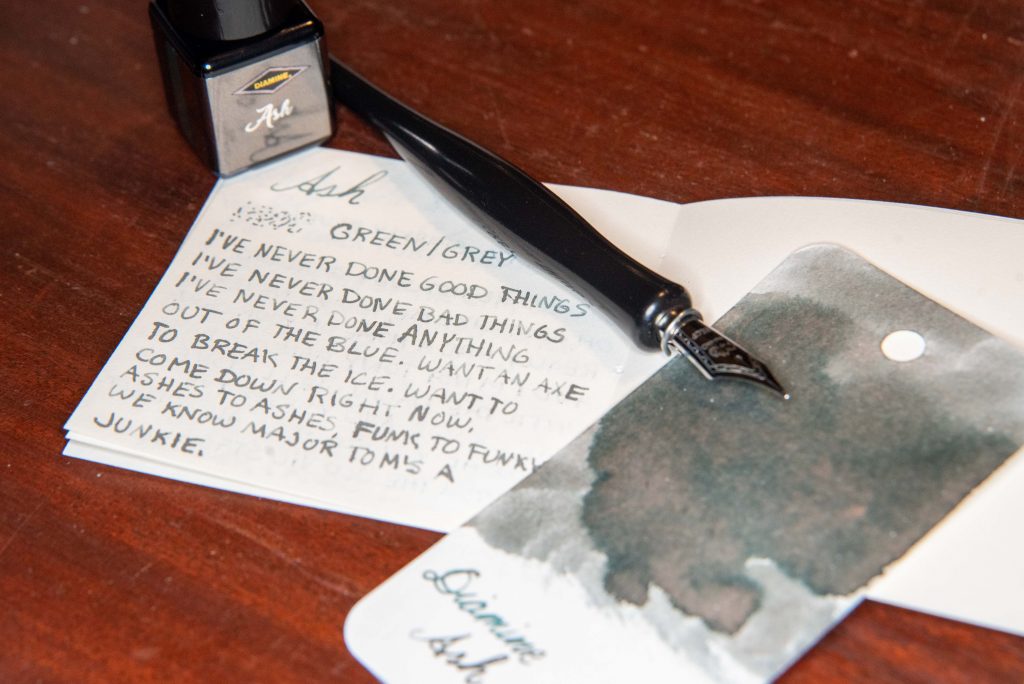 DIAMINE
Ash
Ash
GREEN/GREY
I'VE NEVER DONE GOOD THINGS
I'VE NEVER DONE BAD THINGS
I'VE NEVER DONE ANYTHING
OUT OF THE BLUE. WANT AN AXE
TO BREAK THE ICE. WANT TO
COME DOWN RIGHT NOW.
ASHES TO ASHES, FUNK TO FUNKY
WE KNOW MAJOR TOM'S A
JUNKIE.
Diamine
Ash